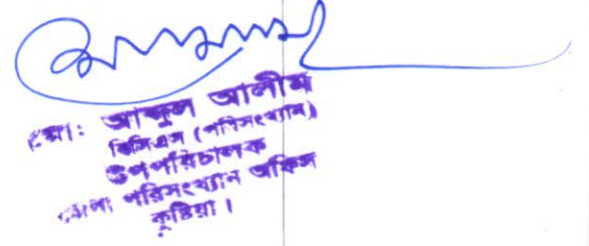 মো: আব্দুল আলীম
বিসিএস (পরিসংখ্যান)
উপপরিচালক
জেলা পরিসংখ্যান অফিস
কুষ্টিয়া।